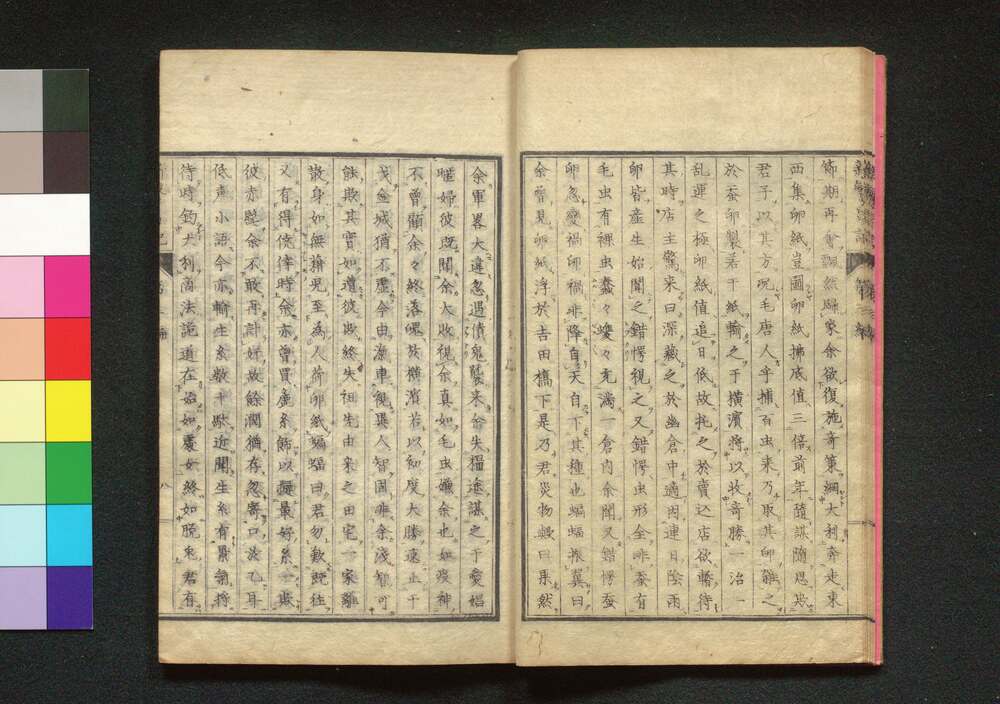 節期再會飄然歸家余欲復施奇策網大利奔走東
西集卵紙豈圖卵紙拂底値三倍前年隨謀隨思與
君子以其方況毛唐人乎捕百虫来乃取其卵雜之
於蚕卵製若干紙輸之于横濱將以收奇勝一治一
乱運之極卵紙値追日低故托之於賣込店欲轉待
其時店主驚来曰深藏之於幽倉中適因連日陰雨
卵皆産生始聞之錯愕視之又錯愕虫形全非蚕有
毛虫有裸虫蠢々蠕々充滿一倉内余聞又錯愕蚕
卵忽變禍卵禍非降自天自下其種也蝙蝠振翼曰
余曾見卵紙浮於吉田橋下是乃君災物歟曰果然
余軍畧大違忽遇債鬼襲来谷失措逐謀之于愛娼
唯婦彼既聞余大敗視余真如毛虫嫌余也如疫神
不曾顧余々終落魄於横濱若以初度大勝速止干
戈金城猶不墮今由滊車視異人智固非余淺智可
能欺其實如遭彼欺終失祖先由来之田宅一家離
散身如無籍兒至為人荷卵紙蝙蝠曰君勿歎既往
又有得僥倖時余亦曾買麁糸飾以擬最好糸一欺
彼赤髯余不敢再計好故餘潤猶存忽寄口於乙耳
低声小語今亦輸生糸数十駄近聞生糸有景氣将
待時釣大利商法詭道在始如處女終如脱兎君有